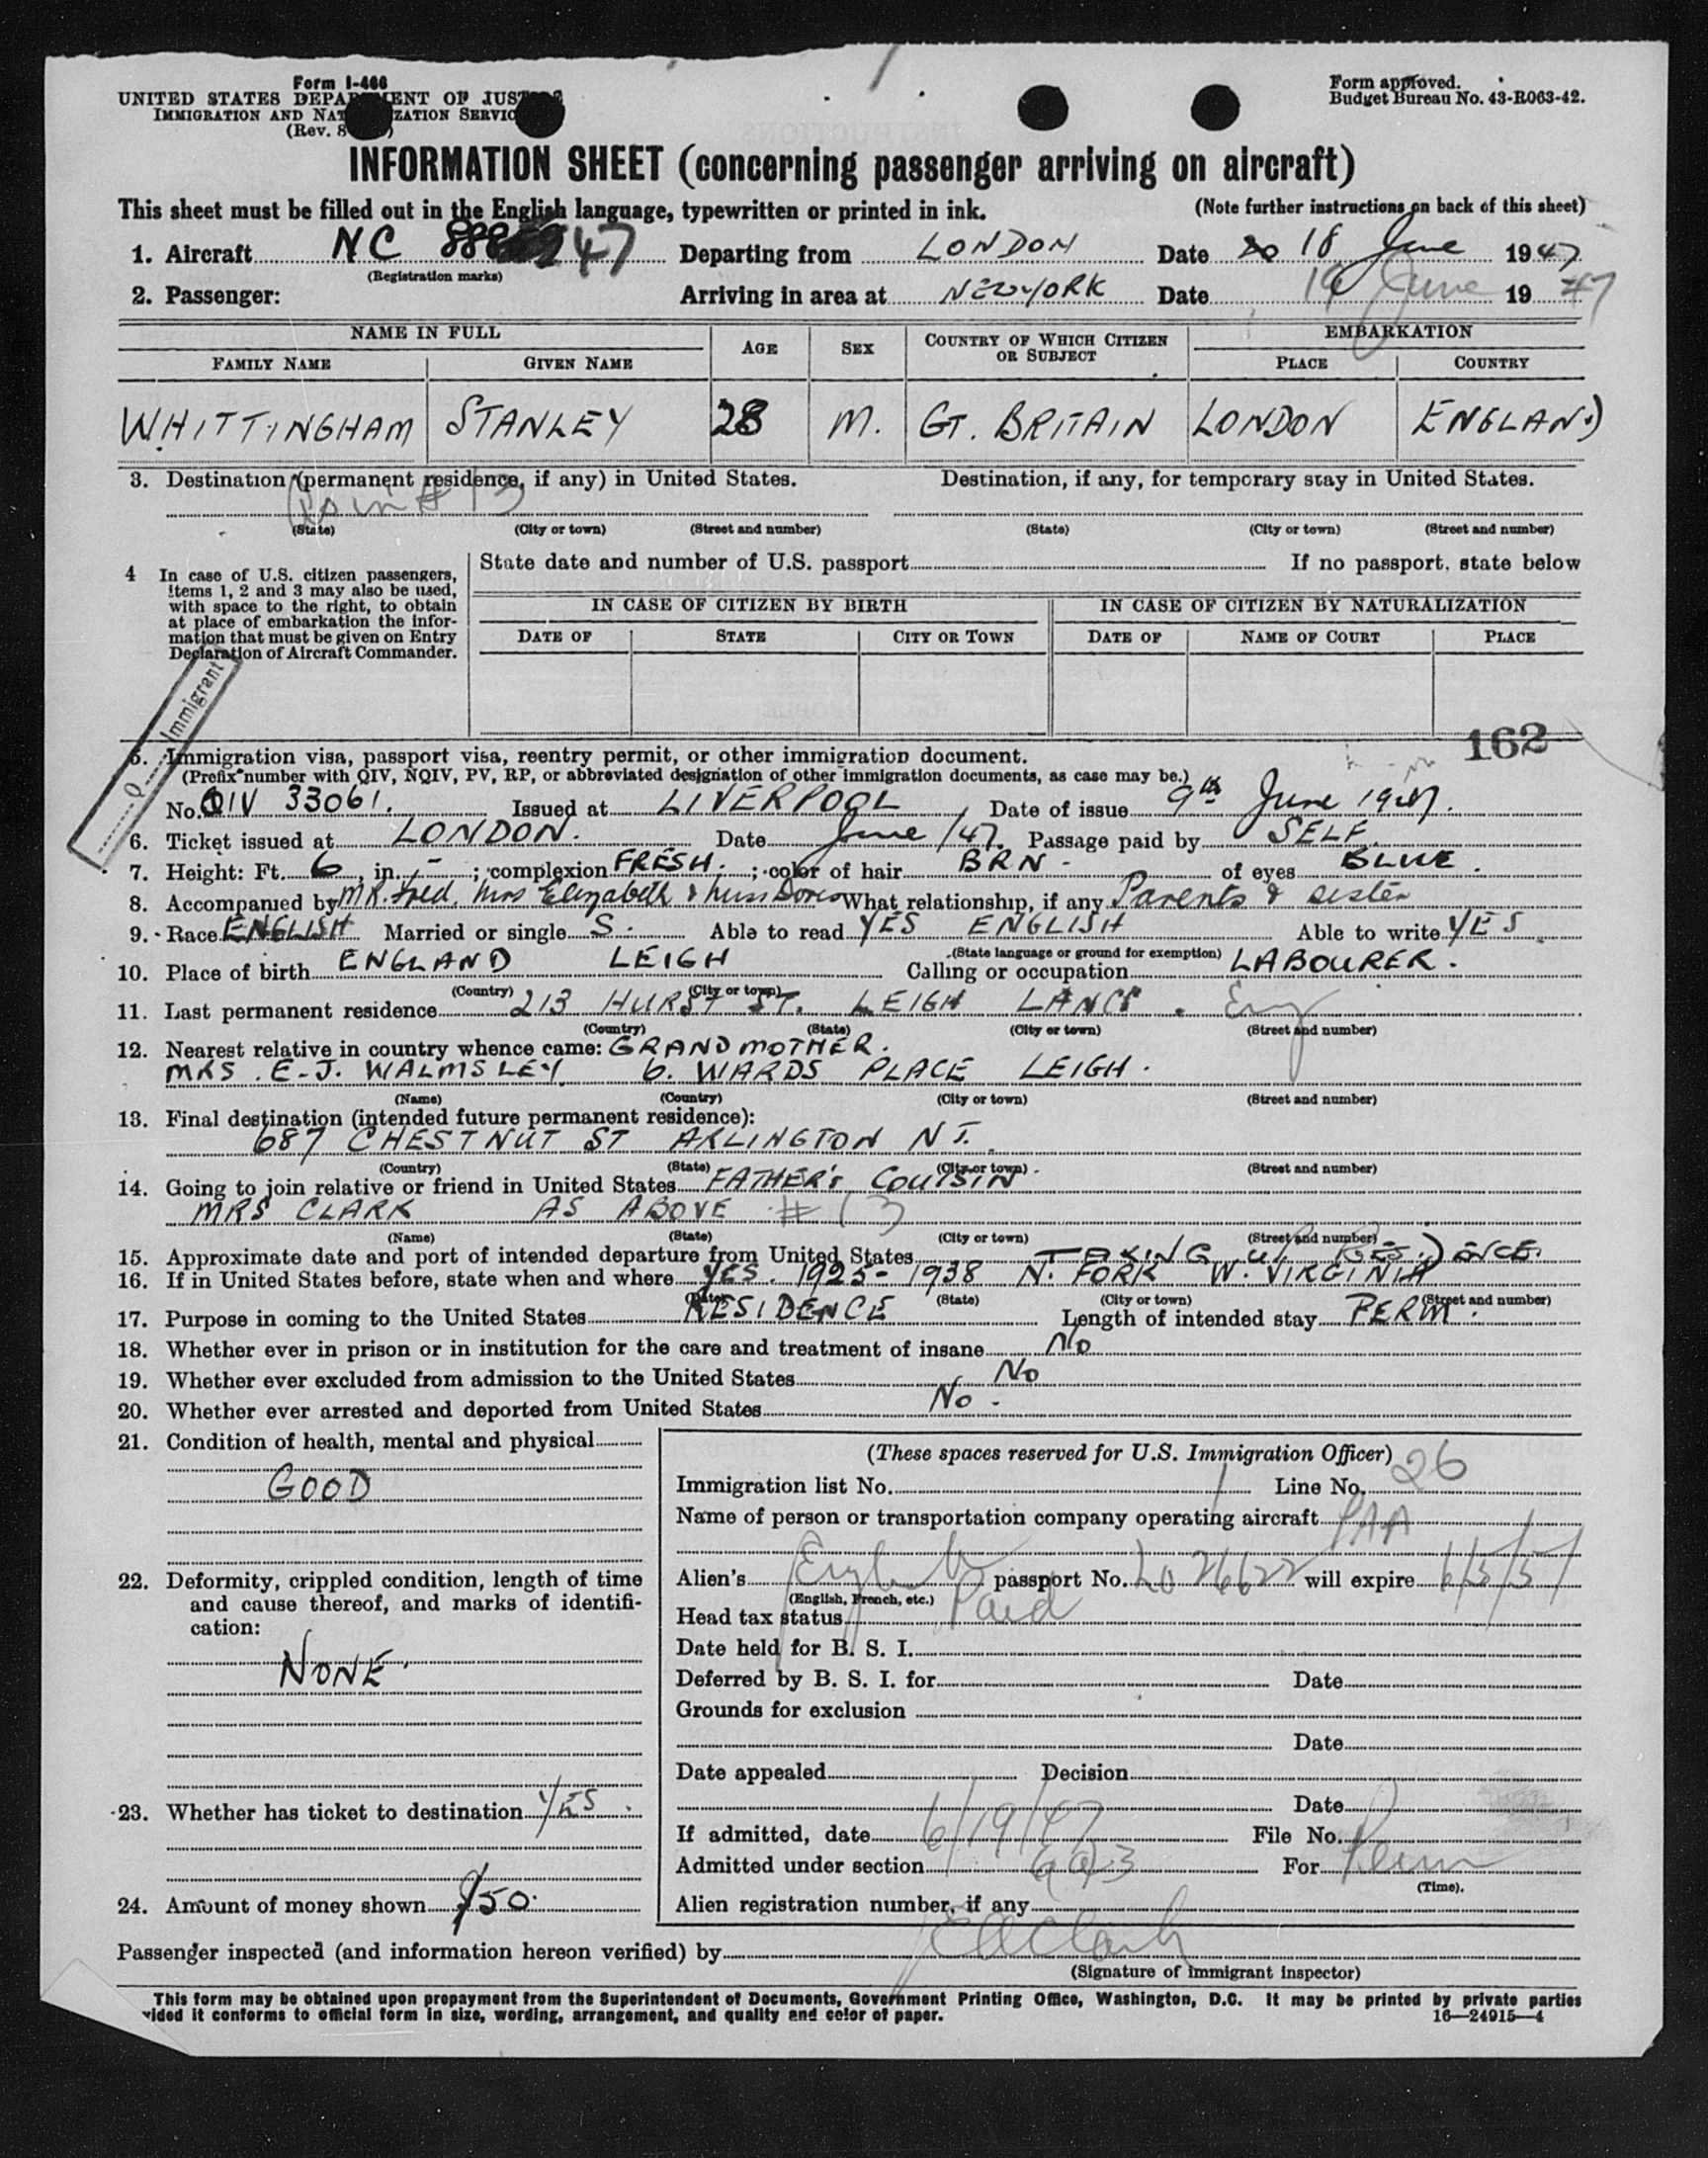 Form I-466
UNITED STATES DEPARTMENT OF JUSTICE
IMMIGRATION AND NATURALIZATION SERVICE
(Rev. 8
Form approved.
Budget Bureau No. 43-R063-42.
INFORMATION SHEET (concerning passenger arriving on aircraft)
This sheet must be filled out in the English language, typewritten or printed in ink. (Note further instructions on back of this sheet)
1. Aircraft NC 888 47 Departing from LONDON Date 18 June 1947
(Registration marks)
2. Passenger: Arriving in area at NEWYORK Date 19 June 1947
NAME IN FULL AGE SEX COUNTRY OF WHICH CITIZEN OR SUBJECT EMBARKATION
FAMILY NAME GIVEN NAME PLACE COUNTRY
WHITTINGHAM STANLEY 28 M. GT. BRITAIN LONDON ENGLAND
3. Destination (permanent residence, if any) in United States. Destination, if any, for temporary stay in United States.
# 13
(State) (City or town) (Street and number) (State) (City or town) (Street and number)
4 In case of U.S. citizen passengers, items 1, 2 and 3 may also be used, with space to the right, to obtain at place of embarkation the information that must be given on Entry Declaration of Aircraft Commander.
State date and number of U.S. passport If no passport, state below
IN CASE OF CITIZEN BY BIRTH IN CASE OF CITIZEN BY NATURALIZATION
DATE OF STATE CITY OR TOWN DATE OF NAME OF COURT PLACE
Immigrant
162
5. Immigration visa, passport visa, reentry permit, or other immigration document.
(Prefix number with QIV, NQIV, PV, RP, or abbreviated designation of other immigration documents, as case may be.)
No. QIV 33061. Issued at LIVERPOOL Date of issue 9th June 1947.
6. Ticket issued at LONDON. Date June /47. Passage paid by SELF.
7. Height: Ft. 6, in. - ; complexion FRESH. ; color of hair BRN - of eyes BLUE.
8. Accompanied by MR. Fred, Mrs Elizabeth & Miss Doris What relationship, if any Parents & sister
9. Race ENGLISH Married or single S. Able to read YES ENGLISH Able to write YES
(State language or ground for exemption)
10. Place of birth ENGLAND LEIGH Calling or occupation LABOURER.
(Country) (City or town)
11. Last permanent residence 213 HURST ST. LEIGH LANCS. Eng
(Country) (State) (City or town) (Street and number)
12. Nearest relative in country whence came: GRANDMOTHER.
MRS. E-J. WALMSLEY 6. WARDS PLACE LEIGH.
(Name) (Country) (City or town) (Street and number)
13. Final destination (intended future permanent residence):
687 CHESTNUT ST ARLINGTON NJ.
(Country) (State) (City or town) (Street and number)
14. Going to join relative or friend in United States FATHER'S COUSIN
MRS CLARK AS ABOVE # 13
(Name) (State) (City or town) (Street and number)
15. Approximate date and port of intended departure from United States TAKING UP RESIDENCE.
16. If in United States before, state when and where YES. 1925 - 1938 N. FORK W. VIRGINIA
(Date) (State) (City or town) (Street and number)
17. Purpose in coming to the United States RESIDENCE Length of intended stay PERM.
18. Whether ever in prison or in institution for the care and treatment of insane No
19. Whether ever excluded from admission to the United States No
20. Whether ever arrested and deported from United States No.
21. Condition of health, mental and physical
GOOD
22. Deformity, crippled condition, length of time and cause thereof, and marks of identification:
NONE.
23. Whether has ticket to destination YES.
24. Amount of money shown $50.
(These spaces reserved for U.S. Immigration Officer)
Immigration list No. 1 Line No. 26
Name of person or transportation company operating aircraft PAA
Alien's passport No. LO 26622 will expire 6/5/57
(English, French, etc.)
Head tax status Paid
Date held for B. S. I.
Deferred by B. S. I. for Date
Grounds for exclusion
Date
Date appealed Decision
Date
If admitted, date 6/19/47 File No.
Admitted under section 6(a)3 For Perm
(Time).
Alien registration number, if any
Passenger inspected (and information hereon verified) by
(Signature of immigrant inspector)
This form may be obtained upon prepayment from the Superintendent of Documents, Government Printing Office, Washington, D.C. It may be printed by private parties
vided it conforms to official form in size, wording, arrangement, and quality and color of paper. 16—24915—4